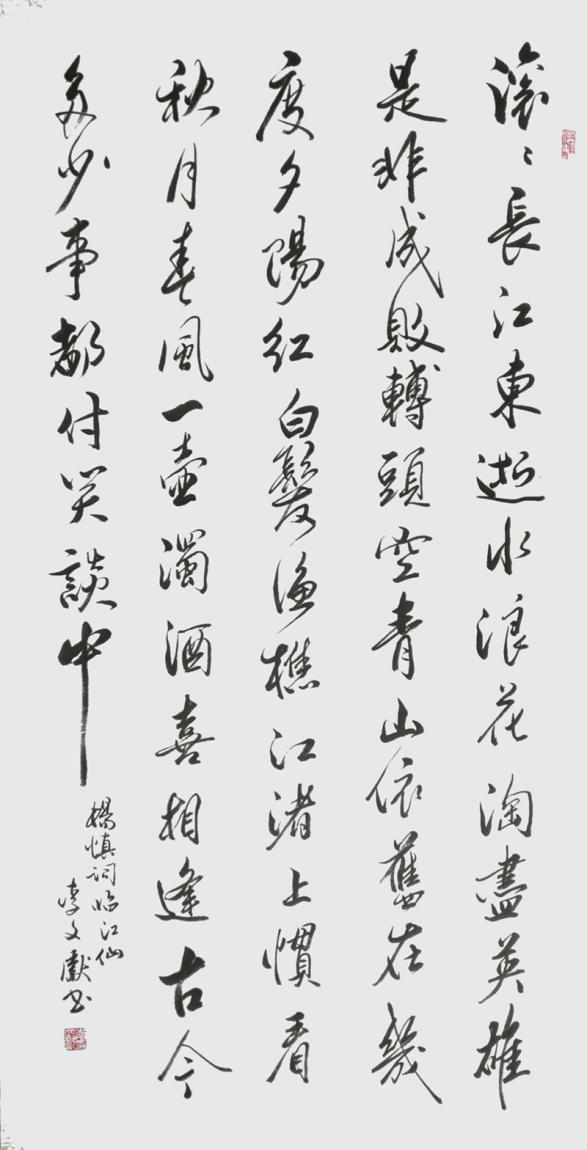 滚〻長江東逝水浪花淘盡英雄
是非成敗轉頭空青山依舊在幾
度夕陽紅白髮漁樵江渚上慣看
秋月春風一壺濁酒喜相逢古今
多少事都付笑談中
楊慎词臨江仙
李文獻书